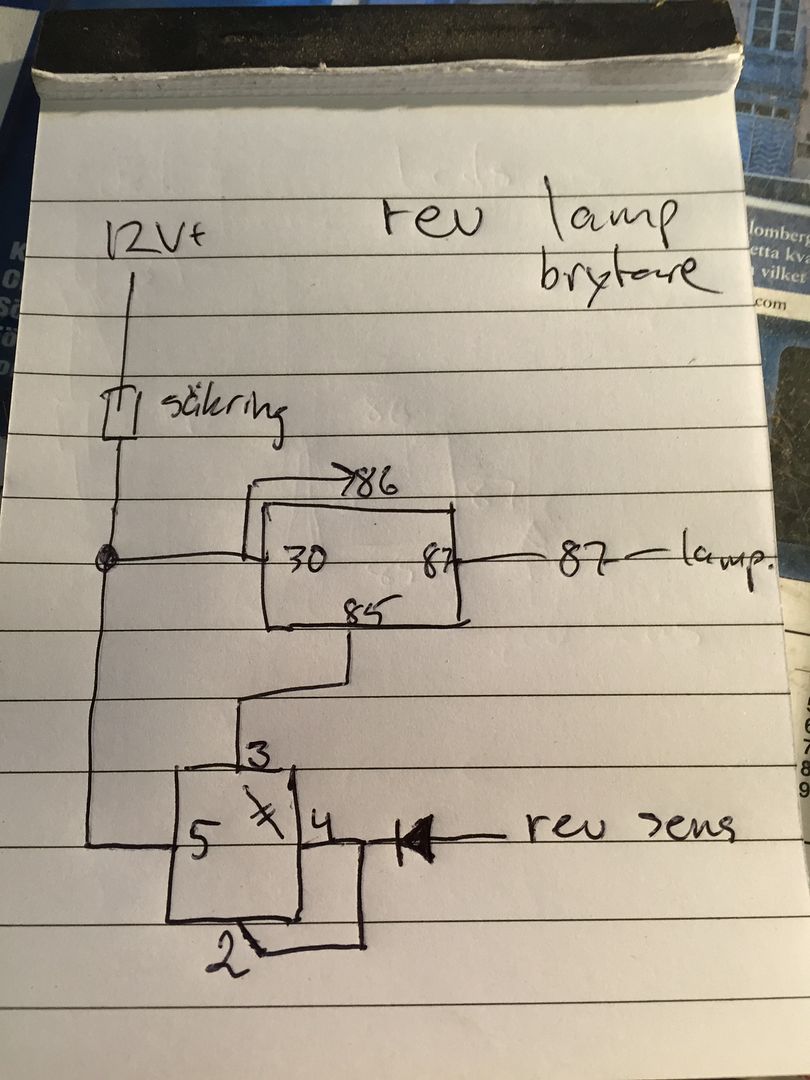 12V+
rev lamp
brytare
säkring
86
30
87
87
lamp.
85
3
5
4
rev sens
2
lomberg
etta kva
vilket
.com
8
9